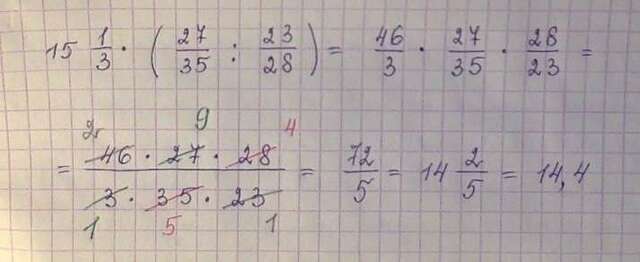 15 1/3 · ( 27/35 : 23/28 ) = 46/3 · 27/35 · 28/23 =
2 9 4
= 46 · 27 · 28 / 3 · 35 · 23 = 72/5 = 14 2/5 = 14,4
1 5 1